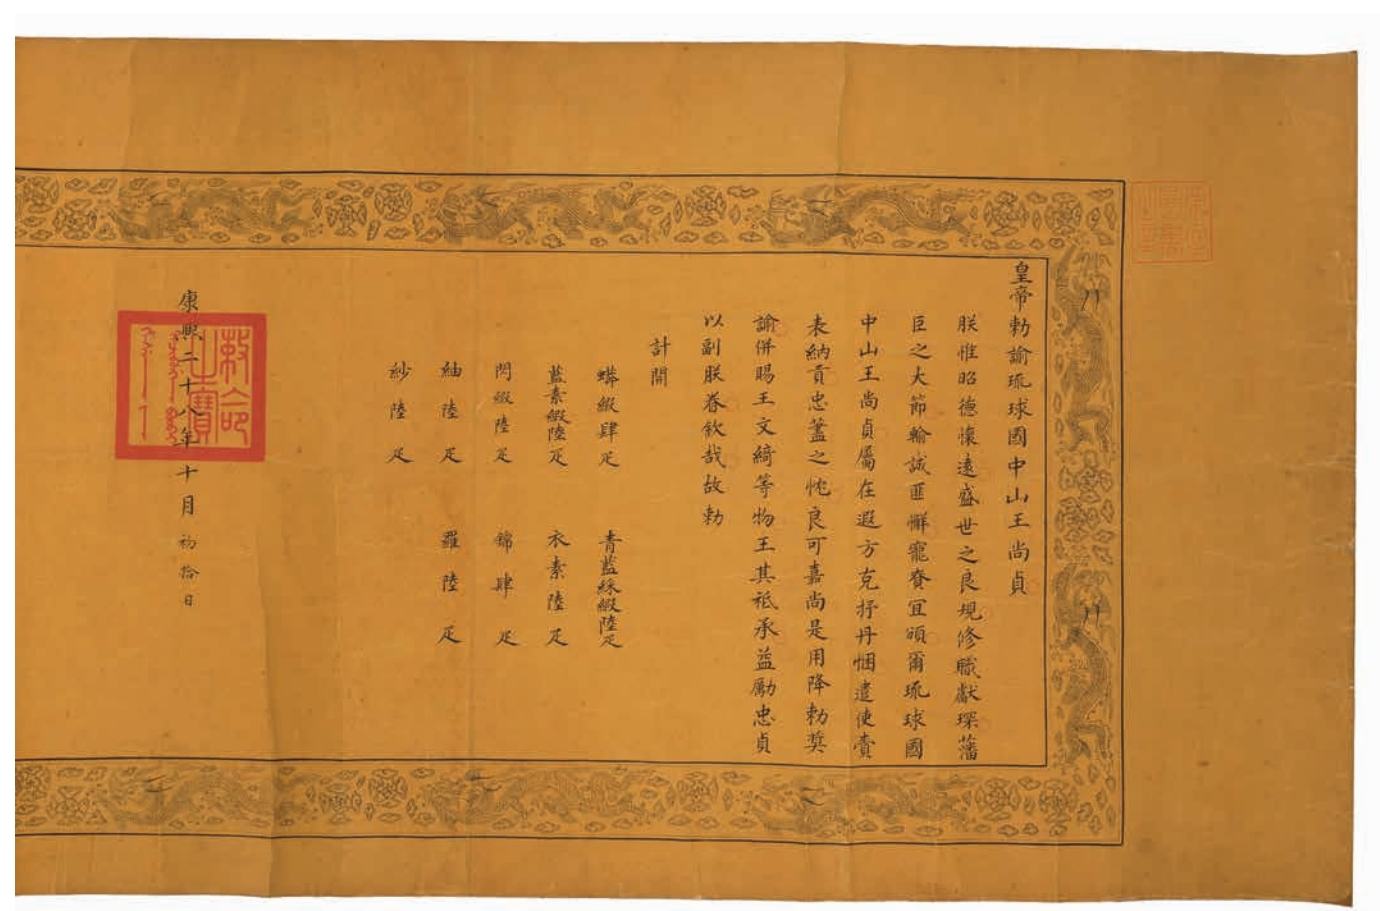 皇帝勅諭琉球國中山王尚貞
朕惟昭德懷遠盛世之良規修職獻琛藩
臣之大節輸誠匪懈寵賚宜頒爾琉球國
中山王尚貞屬在遐方克抒丹悃遣使賫
表納貢忠藎之忱良可嘉尚是用降勅奨
諭併賜王文綺等物王其祗承益勵忠貞
以副朕眷欽哉故勅
計開
蟒緞肆疋 青藍綵緞陸疋
藍素緞陸疋 衣素陸疋
閃緞陸疋 錦肆疋
紬陸疋 羅陸疋
紗陸疋
康熙二十八年十月初拾日
敕命
之寶